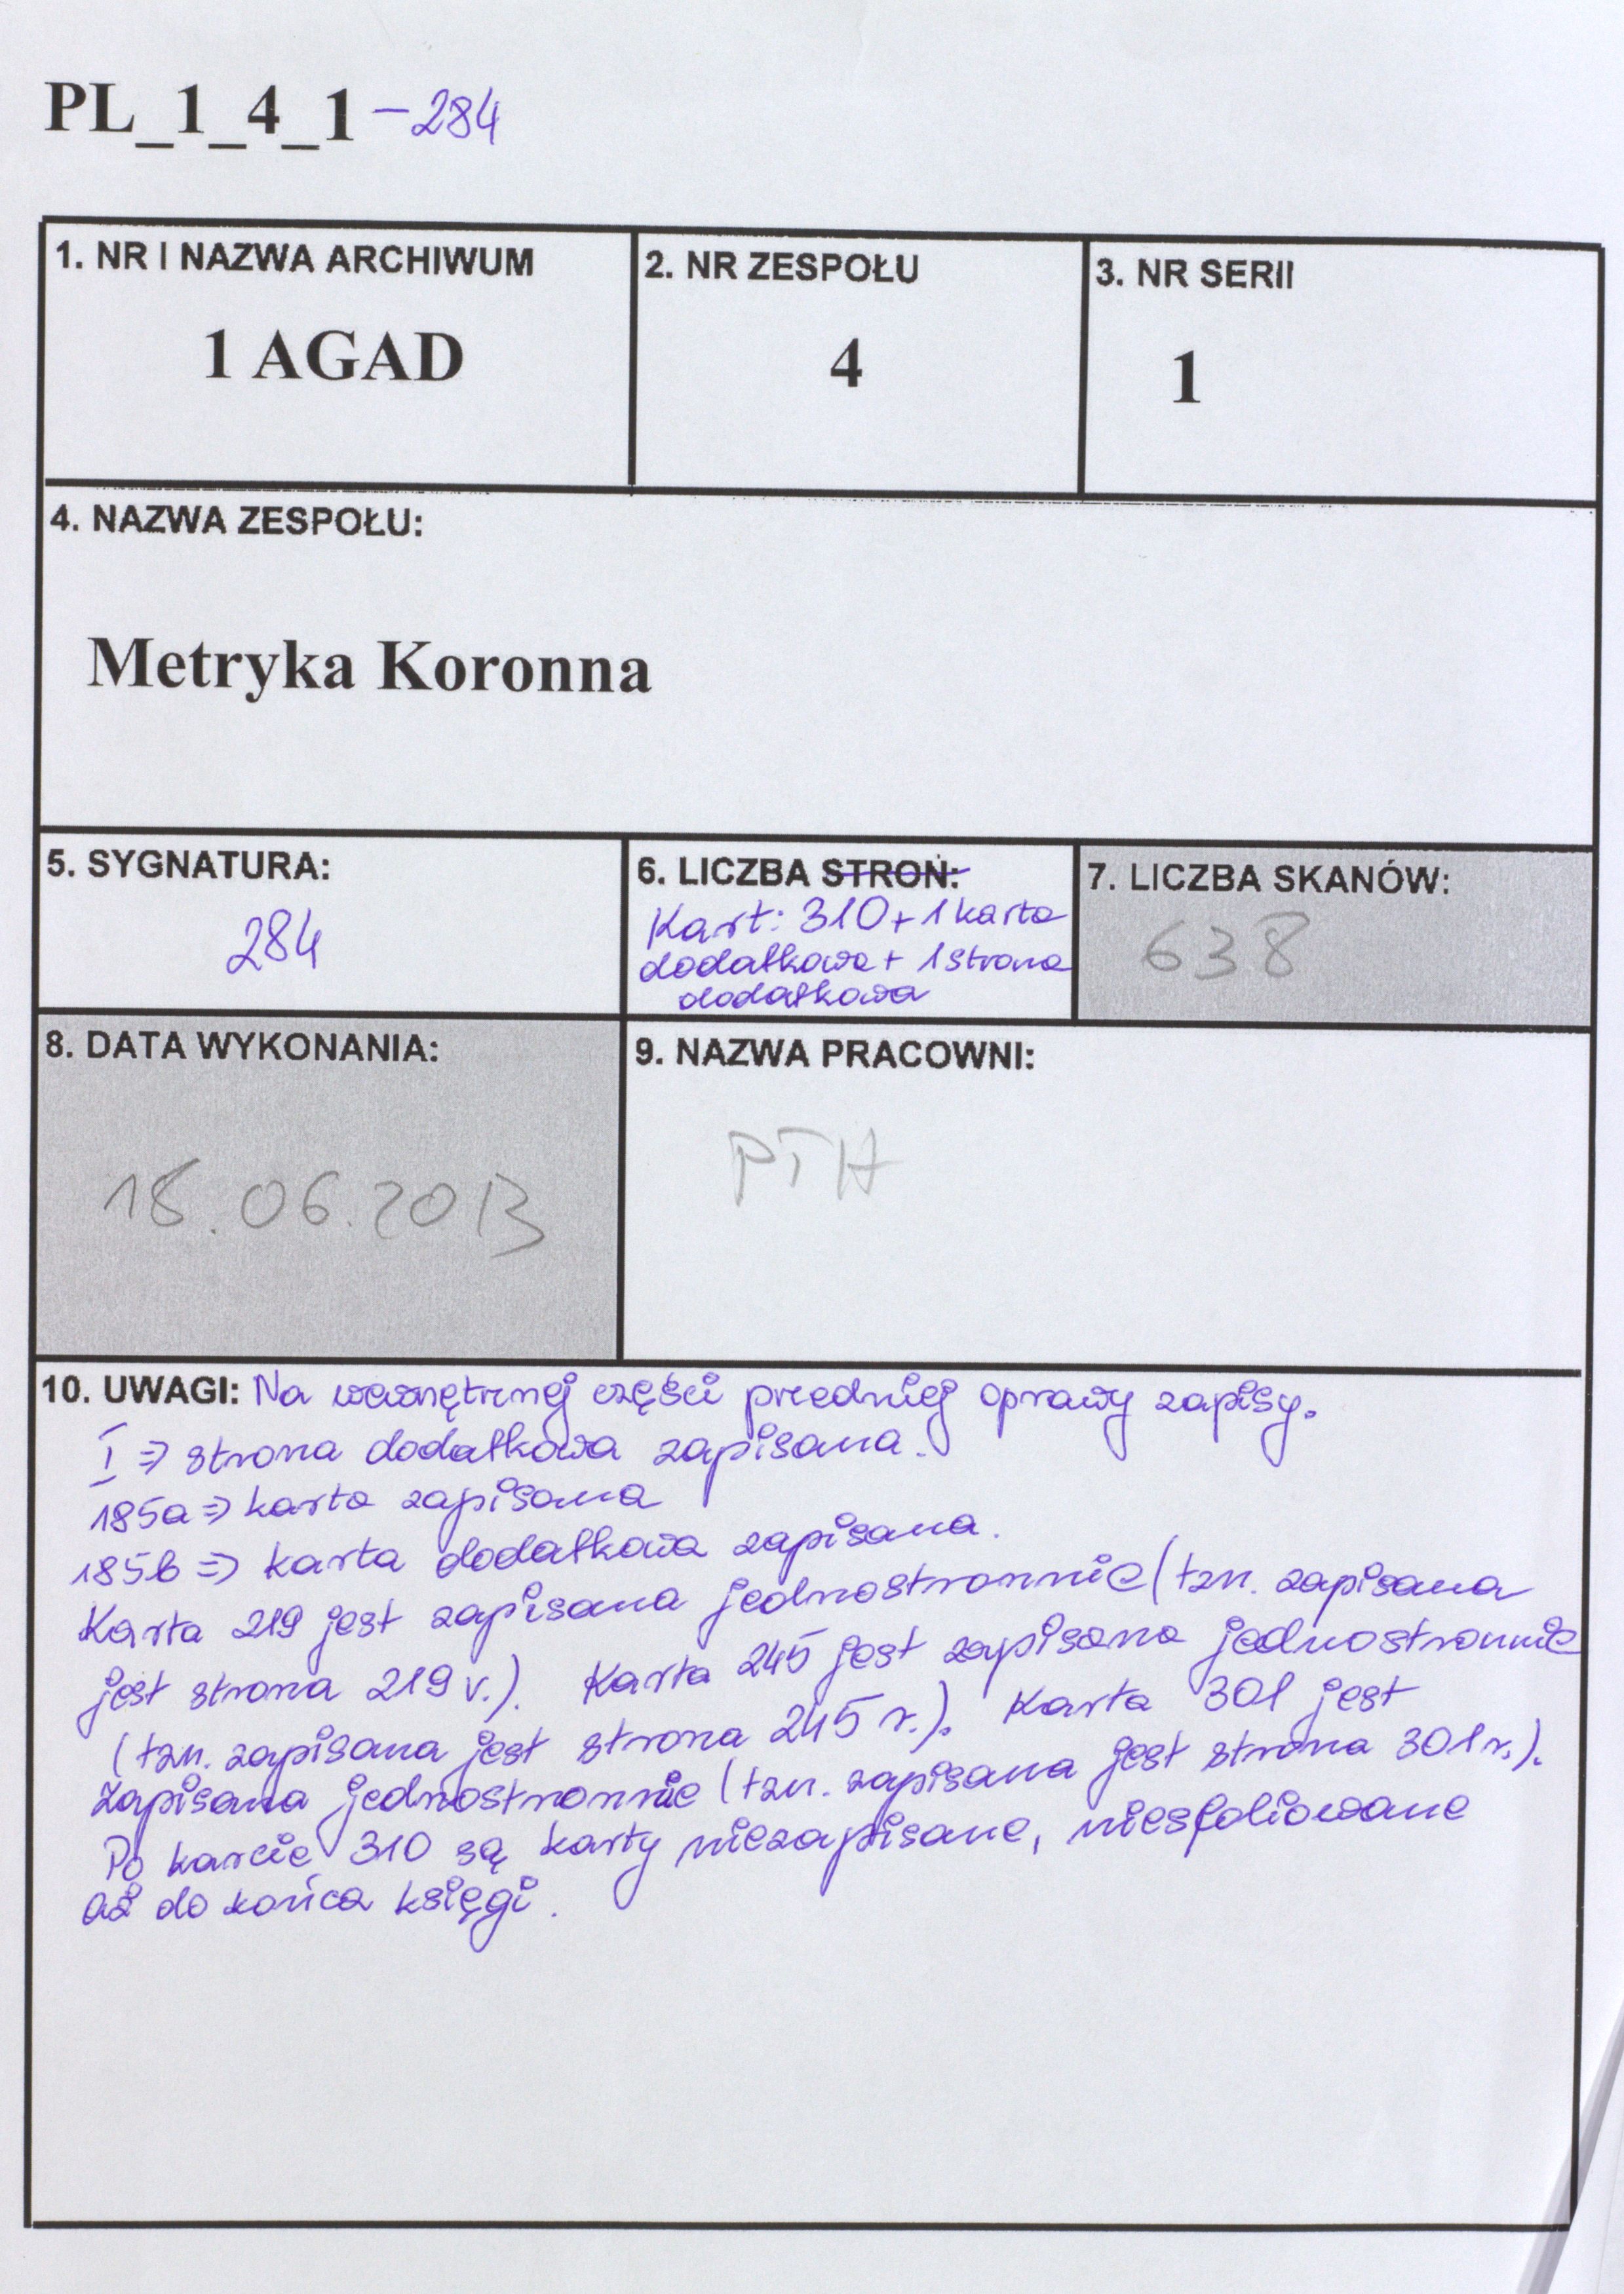 PL_1_4_1 - 284
1. NR I NAZWA ARCHIWUM
1 AGAD
2. NR ZESPOŁU
4
3. NR SERII
1
4. NAZWA ZESPOŁU:
Metryka Koronna
5. SYGNATURA:
284
6. LICZBA STRON:
Kart: 310 + 1 karta
dodatkowa + 1 strona
dodatkowa
7. LICZBA SKANÓW:
638
8. DATA WYKONANIA:
18.06.2013
9. NAZWA PRACOWNI:
PTH
10. UWAGI: Na wewnętrznej części przedniej oprawy zapisy.
I => strona dodatkowa zapisana.
185a => karta zapisana
185b => karta dodatkowa zapisana.
Karta 219 jest zapisana jednostronnie (tzn. zapisana
jest strona 219 v.). Karta 245 jest zapisana jednostronnie
(tzn. zapisana jest strona 245 r.). Karta 301 jest
zapisana jednostronnie (tzn. zapisana jest strona 301 r.).
Po karcie 310 są karty niezapisane, niesfoliowane
aż do końca księgi.